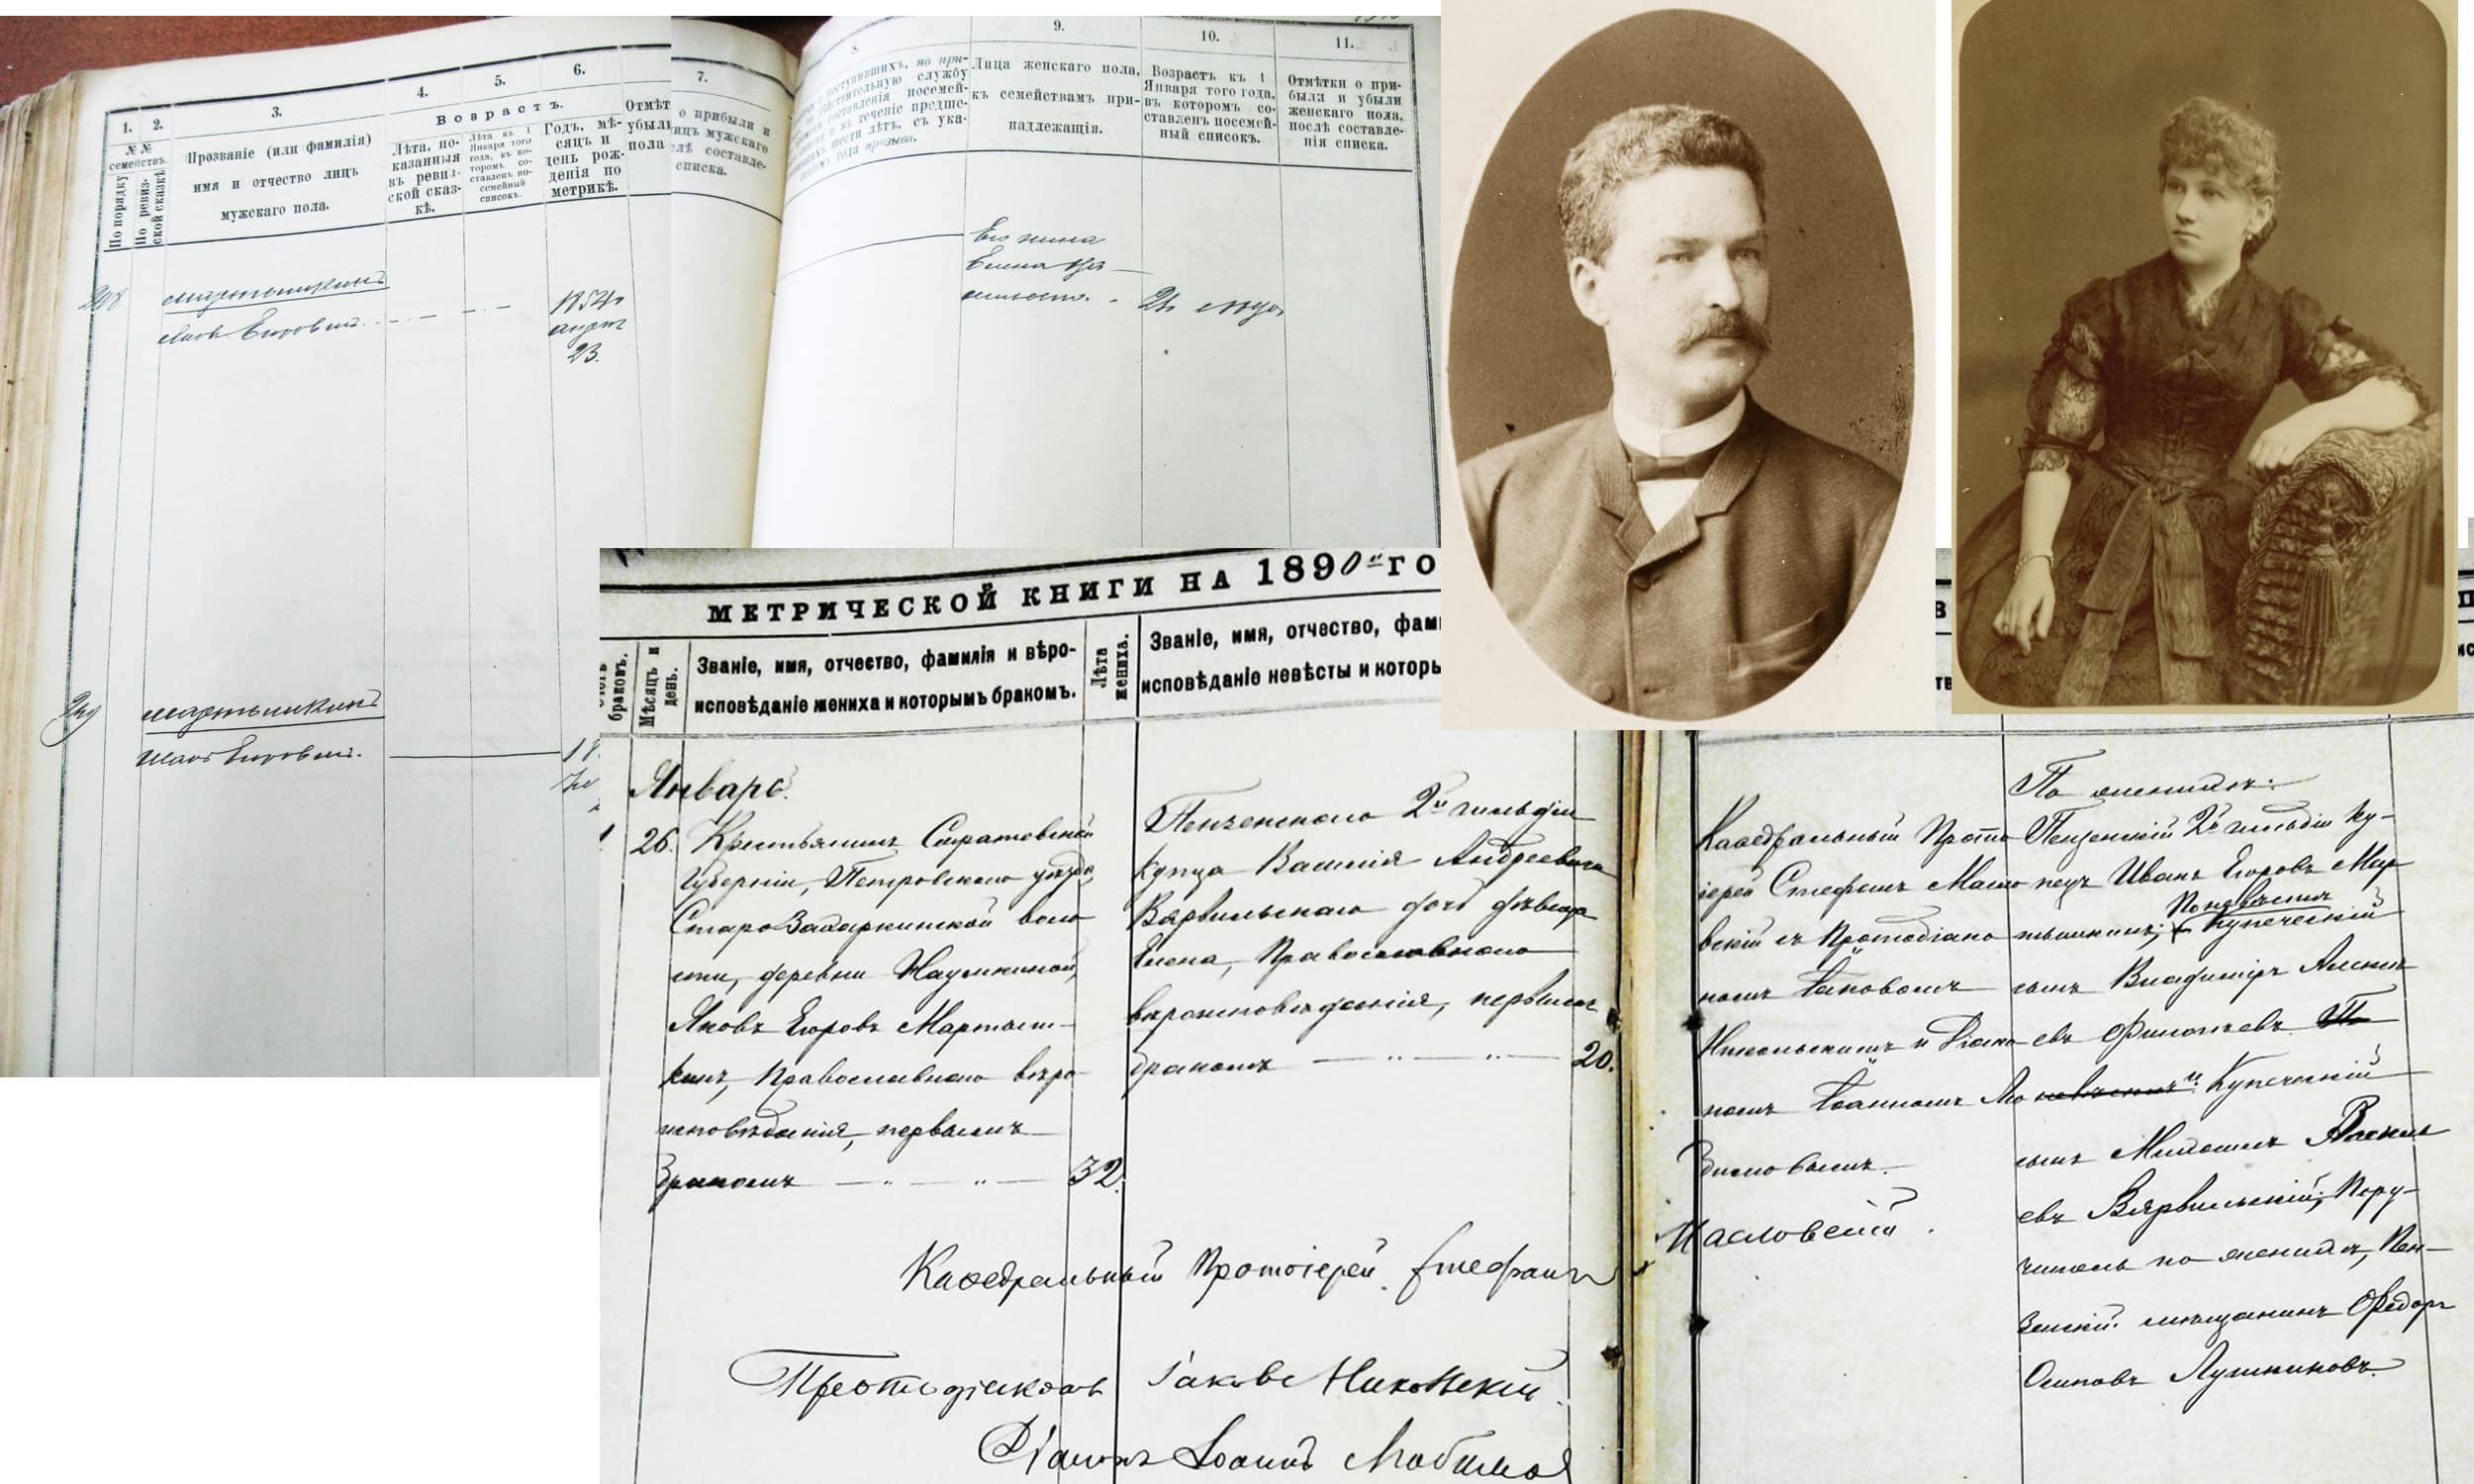 1.
2.
3.
4.
5.
6.
№ №
семействъ.
По порядку
По ревиз-
ской сказкѣ
Прозваніе (или фамилія)
имя и отчество лицъ
мужскаго пола.
Возрастъ.
Лѣта, по-
казанныя
въ ревиз-
ской сказ-
кѣ.
Лѣта къ 1
Января того
года, въ ко-
торомъ со-
ставленъ по-
семейный
списокъ.
Годъ, мѣ-
сяцъ и
день рож-
денія по
метрикѣ.
Отмѣт
убыли
пола
248
Мартышкинъ
Яковъ Егоровъ
1854
23.
249
Мартышкинъ
Иванъ Егоровъ
18
7.
о прибыли и
лицъ мужскаго
слѣ составле-
списка.
8.
поступившихъ, по при-
дѣйствительную службу
составленія посемей-
и въ теченіе предше-
шести лѣтъ, съ ука-
года призыва.
9.
Лица женскаго пола,
къ семействамъ при-
надлежащія.
10.
Возрастъ къ 1
Января того года,
въ которомъ со-
ставленъ посемей-
ный списокъ.
11.
Отмѣтки о при-
были и убыли
женскаго пола,
послѣ составле-
нія списка.
Его жена
Елена
МЕТРИЧЕСКОЙ КНИГИ НА 1890 ГО
браковъ.
Мѣсяцъ и
день.
Званіе, имя, отчество, фамилія и вѣро-
исповѣданіе жениха и которымъ бракомъ.
Лѣта
жениха.
Званіе, имя, отчество, фам
исповѣданіе невѣсты и которы
Январь.
1
26. Крестьянинъ Саратовской
Губерніи, Петровскаго уѣзда,
Старо Захаркинской воло
сти, деревни Наумкиной,
Яковъ Егоровъ Мартыш-
кинъ, Православнаго вѣро-
исповѣданія, первымъ
бракомъ 32.
Пензенскаго 2й гильдіи
купца Василія Андреевича
Вярвильскаго дочь дѣвица
Елена, Православнаго
вѣроисповѣданія, первымъ
бракомъ 20.
Каѳедральный Протоіерей Стефанъ
Протодіаконъ Іаковъ Никольскій.
Діаконъ Іоаннъ Любимов
Каѳедральный Прото
іерей Стефанъ Масло
вскій съ Протодіако
номъ Іаковомъ
Никольскимъ и Діако
номъ Іоанномъ Лю
бимовымъ.
Масловскій.
По женихѣ:
Пензенскій 2й гильдіи ку-
пецъ Иванъ Егоровъ Мар
тышкинъ;
По невѣстѣ
Купеческій
сынъ Владиміръ Алексѣ
евъ Финогѣевъ
и Купеческій
сынъ Михаилъ Василь
евъ Вярвильскій; Пору-
читель по женихѣ, Пен-
зенскій мѣщанинъ Ѳедоръ
Осиповъ Лушниковъ.